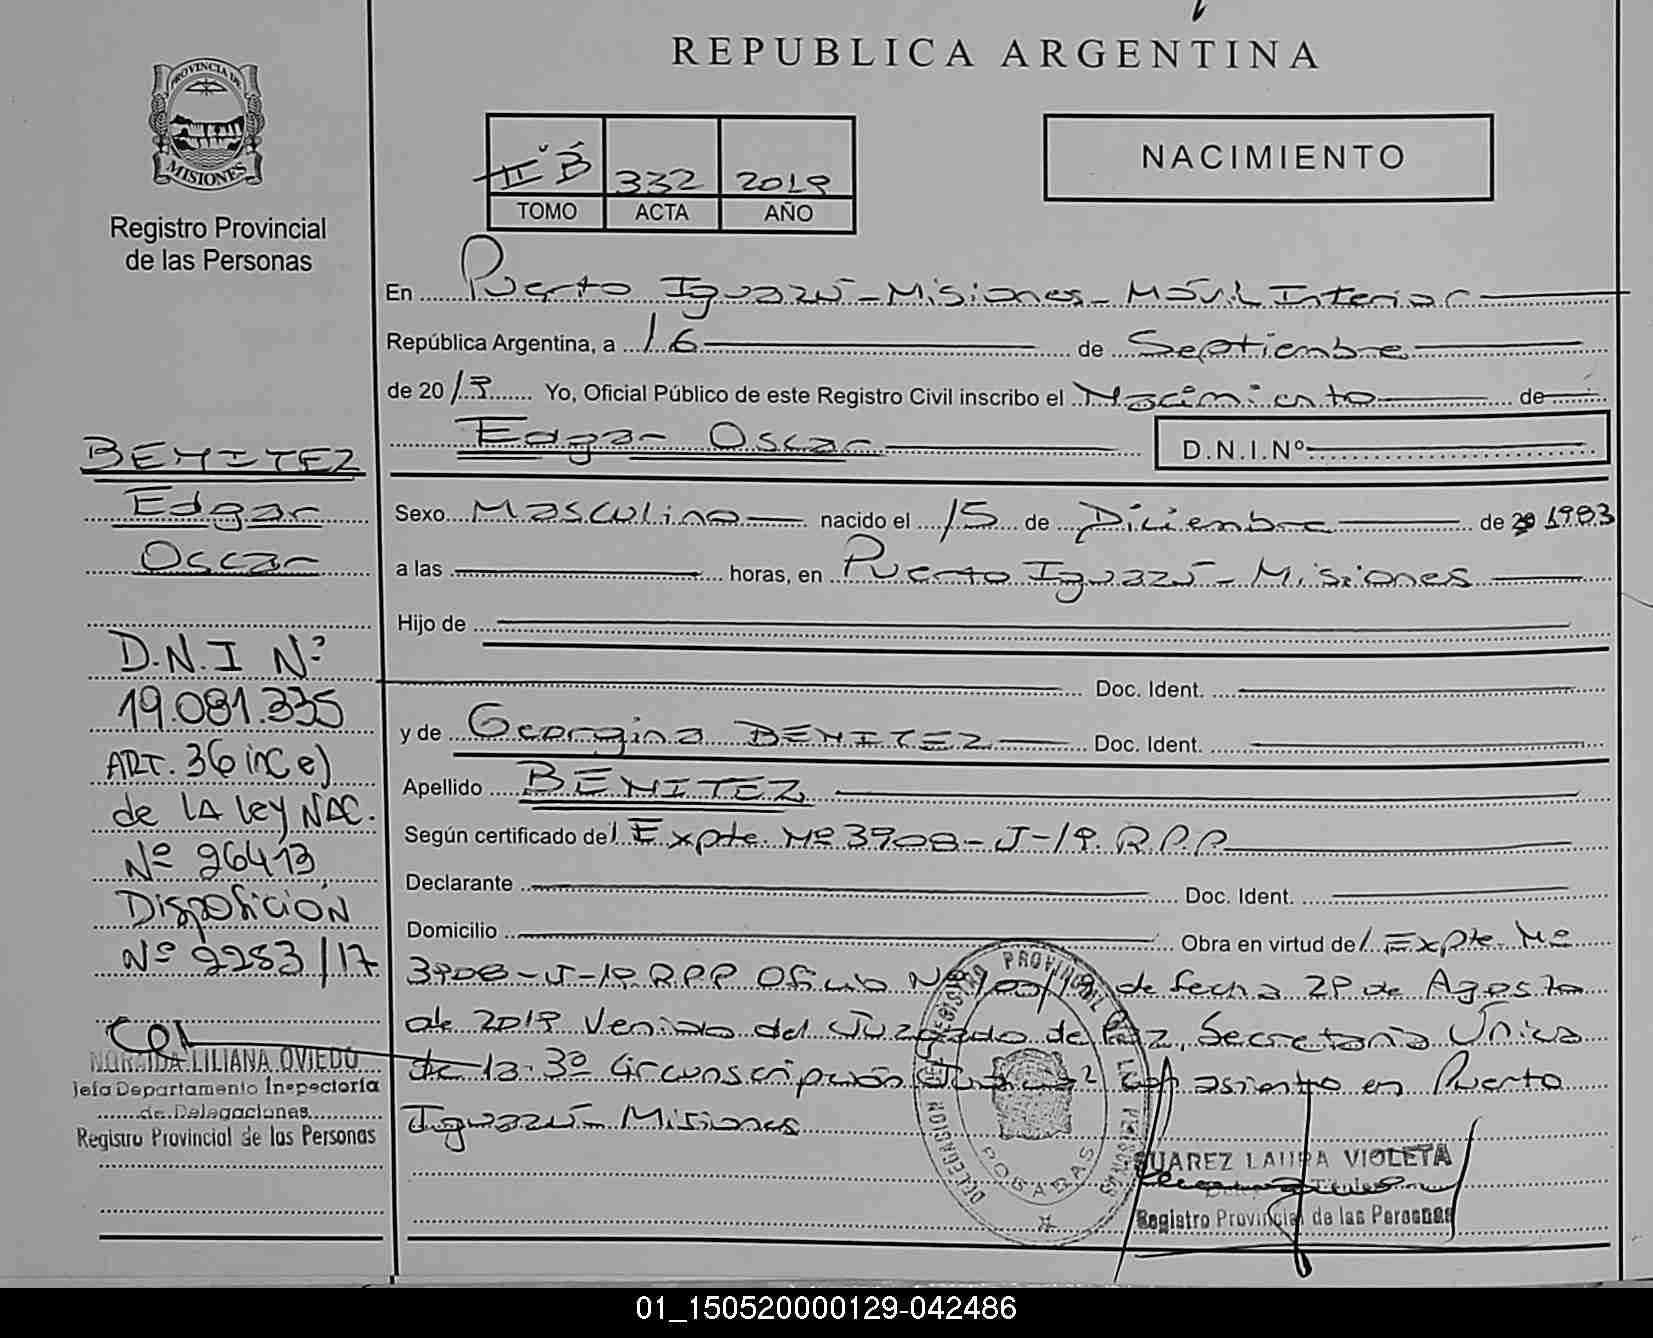 REPUBLICA ARGENTINA
PROVINCIA DE
MISIONES
Registro Provincial
de las Personas
II° B 332 2019
TOMO ACTA AÑO
NACIMIENTO
En Puerto Iguazú - Misiones - Móvil Interior
República Argentina, a 16 de Septiembre
de 2019 Yo, Oficial Público de este Registro Civil inscribo el Nacimiento de
Edgar Oscar D.N.I.Nº
Sexo Masculino nacido el 15 de Diciembre de 1983
a las horas, en Puerto Iguazú - Misiones
Hijo de
Doc. Ident.
y de Georgina BENITEZ Doc. Ident.
Apellido BENITEZ
Según certificado del Expte. Nº 3908-J-19. R.P.P
Declarante Doc. Ident.
Domicilio Obra en virtud del Expte. Nº
3908-J-19. R.P.P Oficio Nº de fecha 29 de Agosto
de 2019 Venido del Juzgado de Paz, Secretaría Única
de la 3º Circunscripción Judicial con asiento en Puerto
Iguazú - Misiones
BENITEZ
Edgar
Oscar
D.N.I Nº
19.081.335
ART. 36 inc e)
de LA Ley NAC.
Nº 26413
Disposición
Nº 2253/17
LILIANA OVIEDO
Jefa Departamento Inspectoría
de Delegaciones
Registro Provincial de las Personas
POSADAS
SUAREZ LAURA VIOLETA
Registro Provincial de las Personas
01_150520000129-042486